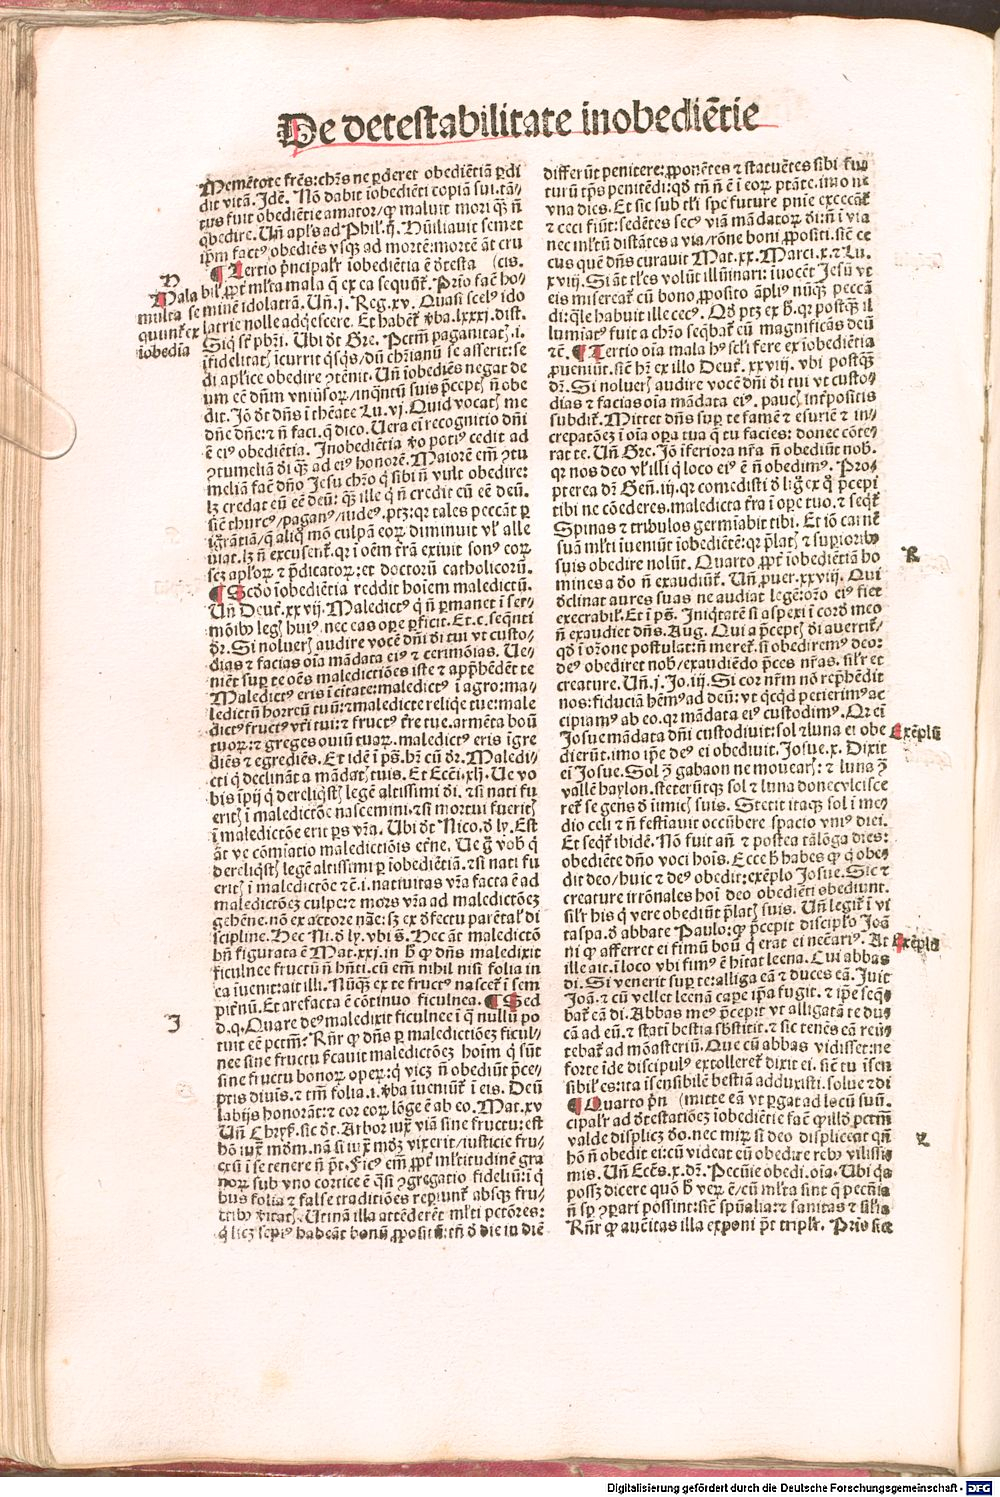 De detestabilitate inobediẽtie
Memẽtote frẽs: chr̃s ne ꝑderet obediẽtiã ꝑdi
dit vitã. Idẽ. Nõ dabit ĩobediẽti copiã sui. tã/
tus fuit obediẽtie amator/ꝙ maluit mori qꝫ ñ
obedire. Uñ apl̃s ad Phil̃. ij. Hũiliauit semet
ip̃m factꝰ obediẽs vsqꝫ ad mortẽ: mortẽ ãt cru
¶ Tertio p̃ncipalr̃ ĩobediẽtia ẽ ꝺ̃testa (cis.
H
Mala
multa se
quunt̃ ex
ĩobedia
bil̃. ꝓpt̃ ml̃ta mala q̃ ex ea sequũt̃. Prĩo facñ ho/
minẽ idolatrã. Uñ. j. Reg. xv. Quasi scelꝰ ido
latrie nolle adq̃escere. Et habet̃ ꝟba. lxxxi. dist.
Siq̃ st̃ pb̃ri. Ubi ꝺt Gre. Pctm̃ paganitatꝭ. i.
ĩfidelitatꝭ ĩcurrit q̃sq̃s/dũ chr̃ianũ se asserit: se
di apl̃ice obedire ꝯtẽnit. Uñ ĩobediẽs negat de
um eẽ dñm vniũsoꝝ/ĩnq̃ntũ suis p̃ceptꝭ ñ obe
dit. Iõ ꝺt dñs ĩ thẽate Lu. vj. Quid vocatꝭ me
dñe dñe: ⁊ ñ faci. q̃ dico. Uera eĩ recognitio dñi
ẽ eiꝰ obediẽtia. Inobediẽtia ꝟo potiꝰ cedit ad
ꝯtumeliã ꝺi qꝫ ad eiꝰ honorẽ. Maiorẽ em̃ ꝯtu
meliã facñ dño Jesu chr̃o q̃ sibi ñ vult obedire:
lꝫ credat eũ eẽ deũ: qꝫ ille q̃ ñ credit eũ eẽ deũ.
sic̃ thurcꝰ/paganꝰ/iudeꝰ. ptꝫ: qr tales peccãt ꝑ
igr̃ãtiã/q̃ aliq̃ mõ culpã eoꝝ diminuit vl̃ alle
uiat. lꝫ ñ excusent̃. qr ĩ oẽm tr̃ã exiuit sonꝰ eoꝝ
scꝫ apl̃oꝝ ⁊ p̃dicatoꝝ: et doctorũ catholicorũ.
¶ Scd̃o ĩobediẽtia reddit hoĩem maledictũ.
Uñ Deut̃. xxvij. Maledictꝰ q̃ ñ ꝑmanet ĩ ser/
mõibꝰ legꝭ huiꝰ. nec eas oꝑe ꝑficit. Et. c. seq̃nti
ꝺr̃. Si nolueꝭ audire vocẽ dñi ꝺi tui vt custo/
dias ⁊ facias oĩa mãdata eiꝰ ⁊ cerimõias. Ue/
niẽt suꝑ te oẽs maledictiões iste ⁊ app̃hẽdẽt te
Maledictꝰ eris ĩ ciũtate: maledictꝰ ĩ agro: ma/
ledictũ horreũ tuũ: ⁊ maledicte reliq̃e tue: male
dictꝰ fructꝰ vẽtri tui: ⁊ fructꝰ tr̃re tue. armẽta boũ
tuoꝝ: ⁊ greges ouiũ tuaꝝ. maledictꝰ eris ĩgre
diẽs ⁊ egrediẽs. Et idẽ ĩ ps̃. hr̃ cũ ꝺr̃. Maledi/
cti q̃ declinãt a mãdatꝭ tuis. Et Ecc̃i. xlj. Ue vo
bis ĩpij q̃ dereliq̃stꝭ legẽ altissimi ꝺi. ⁊ si nati fu
eritꝭ ĩ maledictõe nascemini. ⁊ si mortui fueritꝭ
ĩ maledictõe erit ps̃ vr̃a. Ubi ꝺt Nico. ꝺ ly. Est
ãt ve cõmĩatio maledictiõis et̃ne. Ue g̃ vob̃ q̃
dereliq̃stꝭ legẽ altissimi ꝑ ĩobediẽtiã. ⁊ si nati fu
eritꝭ ĩ maledictõe ⁊c̃. i. natiuitas vr̃a facta ẽ ad
maledictõeꝫ culpe: ⁊ mors vr̃a ad maledictõeꝫ
gehẽne. nõ ex actore nãe: sꝫ ex ꝺ̃fectu parẽtal̃ di
scipline. Hec Ni. ꝺ ly. vbi s̃. Hec ãt maledictõ
bñ figurata ẽ Mat. xxi. in h̃ ꝙ dñs maledixit
ficulnee fructũ ñ hñti. cũ em̃ nihil nisi folia in
ea ĩuenit: ait illi. Nũqꝫ ex te fructꝰ nascet̃ ĩ sem
pit̃nũ. Et arefacta ẽ cõtinuo ficulnea. ¶ Sed
I
d. q. Quare deꝰ maledixit ficulnee ĩ q̃ nullũ po
tuit eẽ pctm̃? Rñr ꝙ dñs ꝑ maledictiõeꝫ ficul/
nee sine fructu p̃cauit maledictõeꝫ hoĩm q̃ sũt
sine fructu bonoꝝ oꝑeꝝ: q̃ vicꝫ ñ obediũt p̃ce/
ptis diuis̃. ⁊ tm̃ folia. i. ꝟba ĩueniũt̃ ĩ eis. Deũ
labijs honorãt: ⁊ cor eoꝝ lõge ẽ ab eo. Mat. xv
Uñ Chryẽ. sic ꝺt. Arbor iuꝝ viã sine fructu: est
hõ iuꝝ mõm. nã si iuꝝ mõꝫ vixerit/iusticie fru/
ctũ ĩ se tenere ñ p̃t. Ficꝰ em̃ ꝓpt̃ ml̃titudinẽ gra
noꝝ sub vno cortice ẽ q̃si ꝯgregatio fideliũ: ĩ q̃
bus folia ⁊ false traditiões reꝑiunt̃ absqꝫ fru/
ctibꝰ ꝟitatꝭ. Utinã illa attẽderẽt ml̃ti pctõres:
q̃ licꝫ sepiꝰ habeãt bonũ ꝓpositũ: tñ ꝺ die in diẽ
differũt penitere: ꝓponẽtes ⁊ statuẽtes sibi fu/
turũ tp̃s penitẽdi: qd̃ tñ ñ ẽ ĩ eoꝝ ptãte. imo ne
vna dies. Et sic sub tl̃i spe future pnĩe excecãt̃
⁊ ceci fiũt: sedẽtes secꝰ viã mãdatoꝝ ꝺi: ñ ĩ via
nec ml̃tũ distãtes a via/rõne boni ꝓpositi. sic̃ ce
cus quẽ dñs curauit Mat. xx. Marci. x. ⁊ Lu.
xviij. Si ãt tl̃es volũt illũinari: ĩuocẽt Jesũ vt
eis misereat̃ cũ bono ꝓposito ãpliꝰ nũqꝫ peccã
di: q̃le habuit ille cecꝰ. Qd̃ ptꝫ ex h̃. qr postqꝫ il
lumĩatꝰ fuit a chr̃o seq̃bat̃ eũ magnificãs deũ
⁊c̃. ¶ Tertio oĩa mala hꝰ scl̃i fere ex ĩobediẽtia
ꝓueniũt. sic̃ hr̃ ex illo Deut̃. xxviij. vbi postqꝫ
ꝺr̃. Si nolueꝭ audire vocẽ dñi ꝺi tui vt custo/
dias ⁊ facias oĩa mãdata eiꝰ. paucꝭ int̃positis
subdit̃. Mittet dñs suꝑ te famẽ ⁊ esuriẽ ⁊ in/
crepatõeꝫ ĩ oĩa oꝑa tua q̃ tu facies: donec cõte/
rat te. Uñ Gre. Iõ ĩferiora nr̃a ñ obediũt nob̃.
qr nos deo vl̃ illi q̃ loco eiꝰ ẽ ñ obedimꝰ. Pro/
pterea dr̃ Geñ. iij. qr comedisti ꝺ lig̃ ex q̃ p̃cepi
tibi ne cõederes. maledicta tr̃a ĩ oꝑe tuo. ⁊ seq̃t̃
Spinas ⁊ tribulos germĩabit tibi. Et iõ carnẽ
suã ml̃ti ĩueniũt ĩobediẽtẽ: qr p̃latꝭ ⁊ suꝑioribꝰ
K
suis obedire nolũt. Quarto ꝓpt̃ ĩobediẽtiã ho
mines a ꝺo ñ exaudiũt̃. Uñ ꝓuer. xxviij. Qui
ꝺ̃clinat aures suas ne audiat legẽ: or̃o eiꝰ fiet
execrabil̃. Et ĩ ps̃. Iniq̃tatẽ si aspexi ĩ corꝺ meo
ñ exaudiet dñs. Aug. Qui a p̃ceptꝭ ꝺi auertit̃/
qd̃ ĩ or̃one postulat: ñ meret̃. si obediremꝰ deo:
deꝰ obediret nob̃/exaudiẽdo p̃ces nr̃as. silr̃ et
creature. Uñ. j. Jo. iij. Si cor nr̃m nõ rep̃hẽdit
nos: fiduciã hẽmꝰ ad deũ: vt q̃cqd̃ petierimꝰ ac
cipiamꝰ ab eo. qr mãdata eiꝰ custodimꝰ. Qr eĩ
Exẽplũ
Josue mãdata dñi custodiuit: sol ⁊ luna ei obe
dierũt. imo ip̃e deꝰ ei obediuit. Josue. x. Dixit
eĩ Josue. Sol ꝯ̃ gabaon ne moueatꝭ: ⁊ luna ꝯ̃
vallẽ haylon. steterũtqꝫ sol ⁊ luna donec vlcisce
ret̃ se gens ꝺ inimicꝭ suis. Stetit itaqꝫ sol ĩ me/
dio celi ⁊ ñ festĩauit occũbere spacio vniꝰ diei.
Et seq̃t̃ ibidẽ. Nõ fuit añ ⁊ postea tã lõga dies:
obediẽte dño voci hoĩs. Ecce h̃ habes ꝙ q̃ obe/
dit deo/huic ⁊ deꝰ obedit: exẽplo Josue. Sic ⁊
creature irrõnales hoĩ deo obediẽti obediunt.
silr̃ his q̃ vere obediũt p̃latꝭ suis. Uñ legit̃ ĩ vi
tas p̃a. ꝺ abbate Paulo: ꝙ p̃cepit discipl̃o Joã
Exẽplũ
ni ꝙ afferret ei fimũ boũ q̃ erat ei necẽariꝰ. At
ille ait. ĩ loco vbi fimꝰ ẽ hĩtat leena. Cui abbas
di. Si venerit suꝑ te: alliga eã ⁊ duces eã. Iuit
Joã. ⁊ cũ vellet leenã caꝑe ip̃a fugit. ⁊ ip̃e seq̃/
bat̃ eã di. Abbas meꝰ p̃cepit vt alligatã te du/
cã ad eũ. ⁊ stati bestia sb̃stitit. ⁊ sic tenẽs eã reũ/
tebat̃ ad mõasteriũ. Que cũ abbas vidisset: ne
forte ĩde discipulꝰ extolleret̃ dixit ei. sic̃ tu ĩsen
sibil̃ es: ita ĩsensibilẽ bestiã adduxisti. solue ⁊ di
¶ Quarto p̃n (mitte eã vt ꝑgat ad locũ suũ.
cipalr̃ ad ꝺ̃testatiõeꝫ ĩobediẽtie facñ ꝙ illd̃ pctm̃
valde displicꝫ ꝺo. nec miꝝ si deo displiceat qñ
L
hõ ñ obedit ei: cũ videat eũ obedire rebꝰ vilissi
mis. Uñ Ecc̃s. x. dr̃. Pecũie obedi. oĩa. Ubi q̃s
possꝫ dicere quõ h̃ veꝝ ẽ/cũ ml̃ta sint q̃ pecũia
ñ sꝑ ꝯꝑari possint: sic̃ spũalia: ⁊ sanitas ⁊ sil̃ia
Rñr ꝙ auc̃itas illa exponi p̃t triplr̃. Prĩo sic ⁊